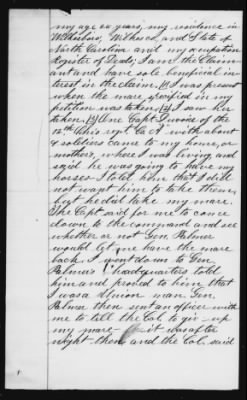 my age 60 years, my residence in
Wilkesboro, Wilkes co, and State of
North Carolina and my occupation
Register of Deeds; I am the Claim-
ant and have sole beneficial in
terest in the claim, I was present
when the mare specified in my
petition was taken, I saw her
taken, One Capt of the
12th Ohio regt Co A with about
4 soldiers came to my home, or
mothers, where I was living, and
said he was going to have my
horses I told him that I did
not want him to take them,
but he did take my mare.
The Capt said for me to come
down to the command and see
whether or not Gen Palmer
would let me have the mare
back I went down to Gen
Palmer's headquarters told
him and proved to him that
I was a Union man Gen
Palmer then sent an officer with
me to tell the Col. to give up
my mare it was after
night then and the Col. said